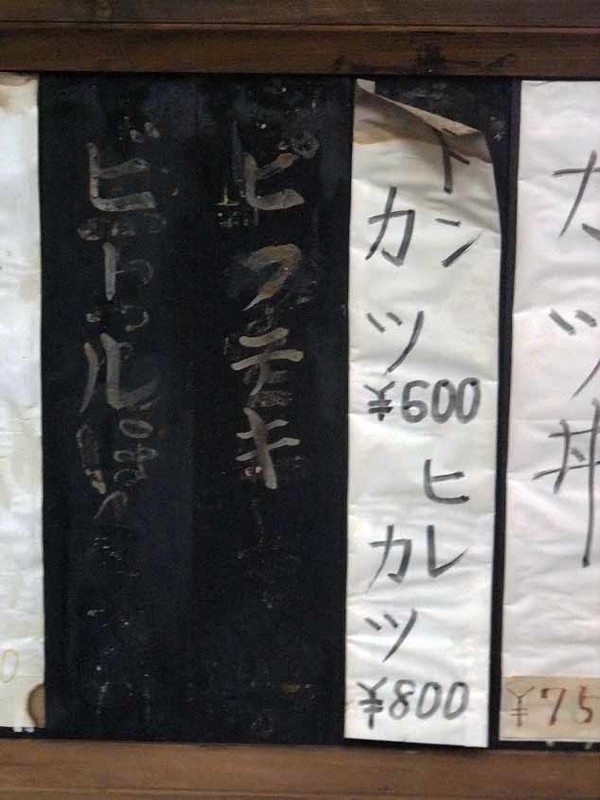 カツ丼
¥75
トン
カツ
¥600
ヒレ
カツ
¥800
ビフテキ
ビトル